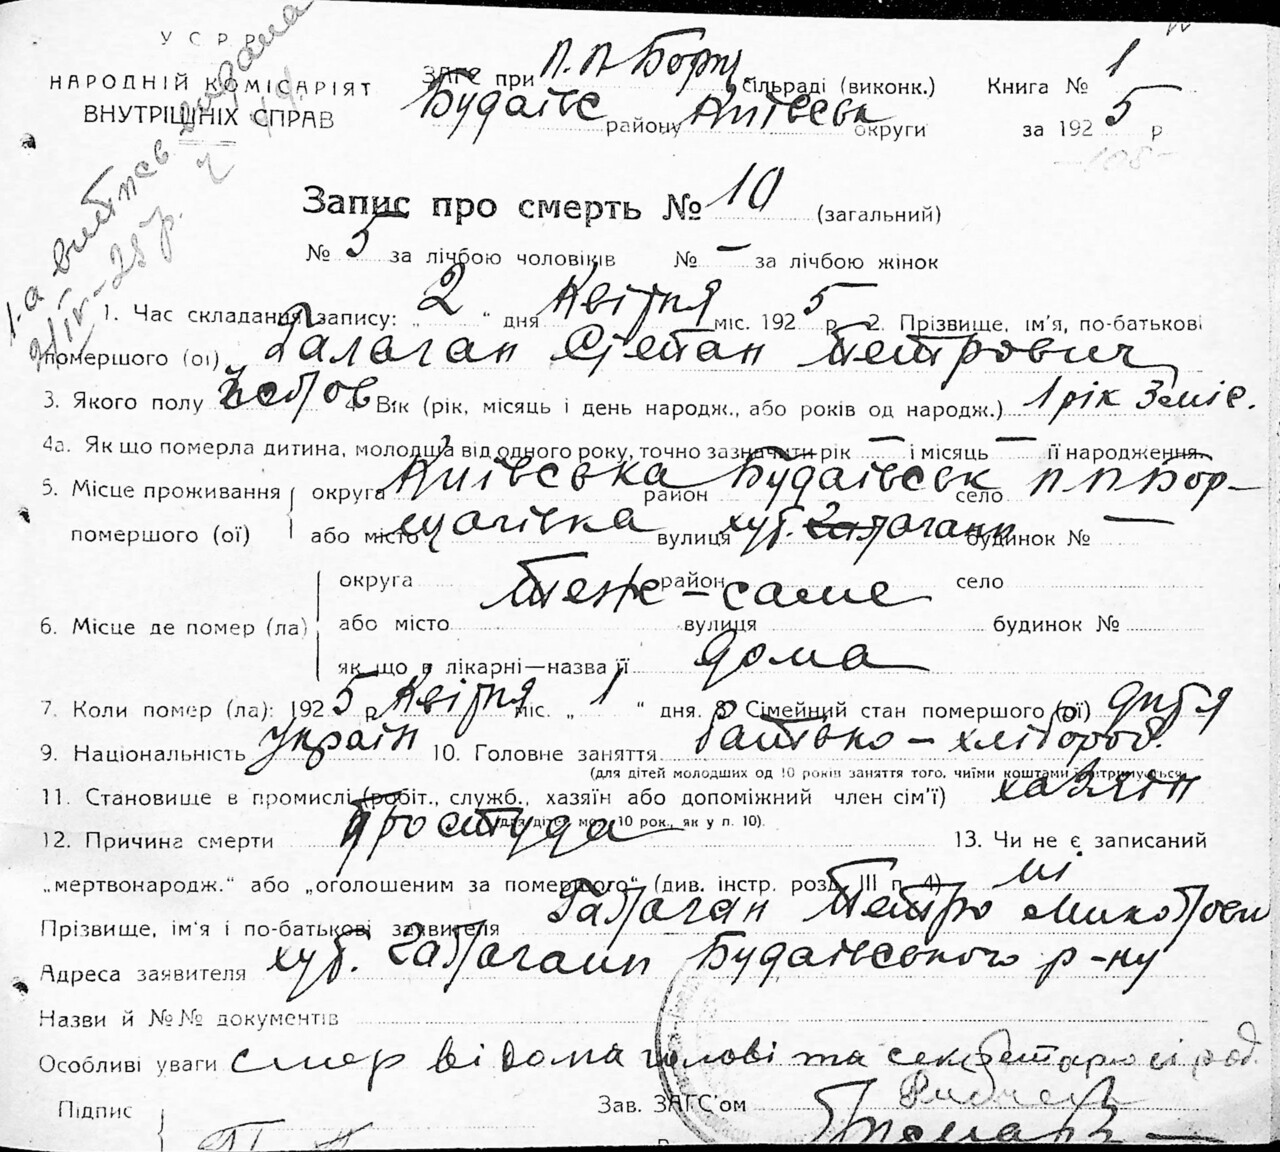 У С Р Р
НАРОДНІЙ КОМІСАРІЯТ
ВНУТРІШНІХ СПРАВ
ЗАГС при П.П Борщ. сільраді (виконк.)
Будаївс району Київськ округи
Книга № 1
за 1925 р
-108-
1-а витяг видана
Запис про смерть № 10 (загальний)
№ 5 за лічбою чоловіків № — за лічбою жінок
1. Час складання запису: „ 2 “ дня Квітня міс. 1925 р 2. Прізвище, ім'я, по-батькові
помершого (ої) Галаган Степан Петрович
3. Якого полу Чолов 4. Вік (рік, місяць і день народж., або років од народж.) 1 рік 3 міс.
4а. Як що померла дитина, молодша від одного року, точно зазначити рік — і місяць — її народження
5. Місце проживання помершого (ої) округа Київська район Будаївськ село П П Бор-
або місто щагівка вулиця хут. Галагани будинок № —
6. Місце де помер (ла) округа район село
Теж-саме
або місто вулиця будинок №
як що в лікарні—назва її дома
7. Коли помер (ла): 1925 р Квітня міс. „ 1 “ дня. 8. Сімейний стан помершого (ої) дитя
9. Національність Україн 10. Головне заняття батько – хлібороб.
(для дітей молодших од 10 років заняття того, чиїми коштами їх утримується
11. Становище в промислі (робіт., служб., хазяїн або допоміжний член сім'ї) хазяїн
(для дітей мол. 10 рок., як у п. 10).
12. Причина смерти Простуда 13. Чи не є записаний
„мертвонародж.“ або „оголошеним за помершого“ (див. інстр. розд. III п. 4) ні
Прізвище, ім'я і по-батькові заявителя Галаган Петро Миколаєв
Адреса заявителя хут. Галагани Будаївського р-ну
Назви й №№ документів
Особливі уваги смер відома голові та секретарю сі
Підпис
Зав. ЗАГС'ом